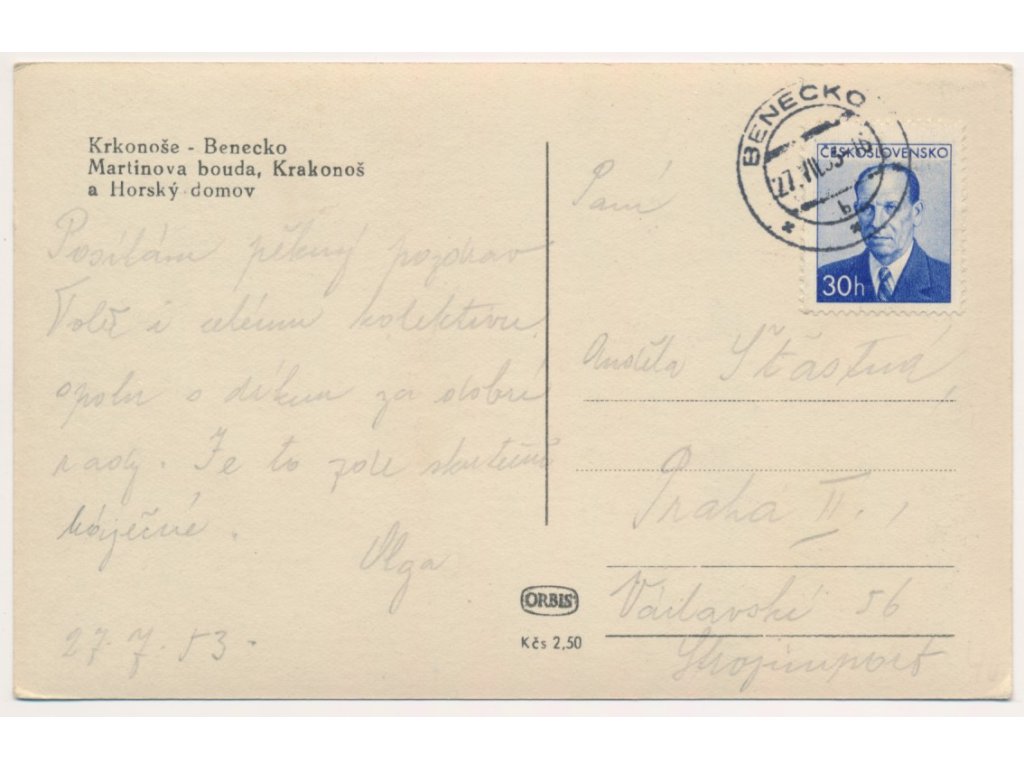 Krkonoše - Benecko
Martinova bouda, Krakonoš
a Horský domov
Posílám pěkný pozdrav
i celému kolektivu
spolu s díkem za dobré
rady. Je to zde skutečně
báječné.
Olga
27.7.53 -
BENECKO
27.VII.53-16
b
ČESKOSLOVENSKO
30h
Paní
Anděla Šťastná,
Praha II.,
Václavské 56
Strojimport
ORBIS
Kčs 2,50